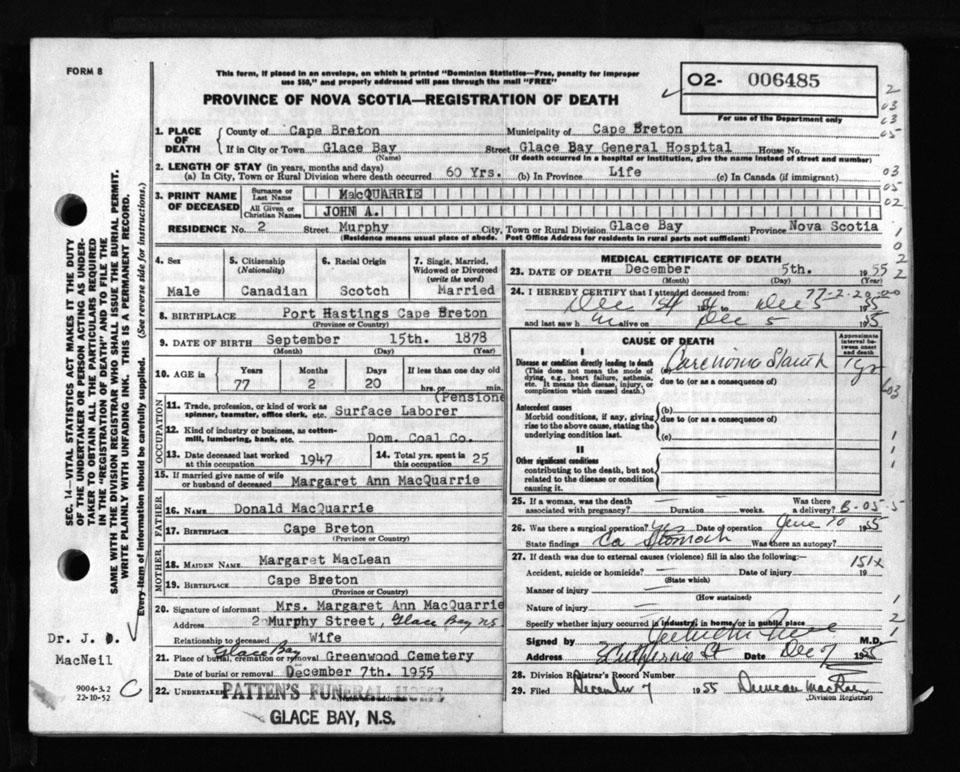 FORM 8
This form, if placed in an envelope, on which is printed "Dominion Statistics—Free, penalty for improper
use $50," and properly addressed will pass through the mail "FREE"
O2- 006485
For use of the Department only
PROVINCE OF NOVA SCOTIA—REGISTRATION OF DEATH
1. PLACE OF DEATH
County of Cape Breton Municipality of Cape Breton
If in City or Town Glace Bay Street Glace Bay General Hospital House No.
(Name) (If death occurred in a hospital or institution, give the name instead of street and number)
2. LENGTH OF STAY (in years, months and days)
(a) In City, Town or Rural Division where death occurred 60 Yrs. (b) In Province Life (c) In Canada (if immigrant)
3. PRINT NAME OF DECEASED
Surname or Last Name MacQUARRIE
All Given or Christian Names JOHN A.
RESIDENCE No. 2 Street Murphy City, Town or Rural Division Glace Bay Province Nova Scotia
(Residence means usual place of abode. Post Office Address for residents in rural parts not sufficient)
4. Sex Male
5. Citizenship (Nationality) Canadian
6. Racial Origin Scotch
7. Single, Married, Widowed or Divorced (write the word) Married
8. BIRTHPLACE Port Hastings Cape Breton
(Province or Country)
9. DATE OF BIRTH September 15th. 1878
(Month) (Day) (Year)
10. AGE in Years Months Days If less than one day old
77 2 20 hrs. or min.
OCCUPATION
(Pensione
11. Trade, profession, or kind of work as spinner, teamster, office clerk, etc. Surface Laborer
12. Kind of industry or business, as cotton-mill, lumbering, bank, etc. Dom. Coal Co.
13. Date deceased last worked at this occupation 1947
14. Total yrs. spent in this occupation 25
15. If married give name of wife or husband of deceased Margaret Ann MacQuarrie
FATHER
16. NAME Donald MacQuarrie
17. BIRTHPLACE Cape Breton
(Province or Country)
MOTHER
18. MAIDEN NAME Margaret MacLean
19. BIRTHPLACE Cape Breton
(Province or Country)
20. Signature of informant Mrs. Margaret Ann MacQuarrie
Address 2 Murphy Street, Glace Bay NS
Relationship to deceased Wife
21. Place of burial, cremation or removal Glace Bay Greenwood Cemetery
Date of burial or removal December 7th. 1955
22. UNDERTAKER PATTEN'S FUNERAL HOME
GLACE BAY, N.S.
MEDICAL CERTIFICATE OF DEATH
23. DATE OF DEATH December 5th. 1955
(Month) (Day) (Year)
77-2-20
24. I HEREBY CERTIFY that I attended deceased from:
Dec 1st to Dec 5 1955
and last saw h im alive on Dec 5 1955
CAUSE OF DEATH
Approximate interval between onset and death
I
Disease or condition directly leading to death
(This does not mean the mode of dying, e.g., heart failure, asthenia, etc. It means the disease, injury, or complication which caused death.)
(a) Carcinoma Stomach 1 yr
due to (or as a consequence of)
Antecedent causes
Morbid conditions, if any, giving rise to the above cause, stating the underlying condition last.
(b)
due to (or as a consequence of)
(c)
II
Other significant conditions
contributing to the death, but not related to the disease or condition causing it.
25. If a woman, was the death associated with pregnancy? Duration weeks. Was there a delivery?
26. Was there a surgical operation? yes Date of operation June 10 1955
State findings Ca Stomach Was there an autopsy?
27. If death was due to external causes (violence) fill in also the following:—
Accident, suicide or homicide? Date of injury 19
(State which)
Manner of injury
(How sustained)
Nature of injury
Specify whether injury occurred in industry, in home, or in public place
151x
Signed by M.D.
Address Date Dec 7 1955
28. Division Registrar's Record Number
29. Filed December 7 1955 Duncan MacRae
(Division Registrar)
SEC. 14—VITAL STATISTICS ACT MAKES IT THE DUTY
OF THE UNDERTAKER OR PERSON ACTING AS UNDER-
TAKER TO OBTAIN ALL THE PARTICULARS REQUIRED
IN THE "REGISTRATION OF DEATH" AND TO FILE THE
SAME WITH THE DIVISION REGISTRAR WHO SHALL ISSUE THE BURIAL PERMIT.
WRITE PLAINLY WITH UNFADING INK. THIS IS A PERMANENT RECORD.
Every item of information should be carefully supplied. (See reverse side for instructions.)
Dr. J. MacNeil
9004-3.2
22-10-52
C